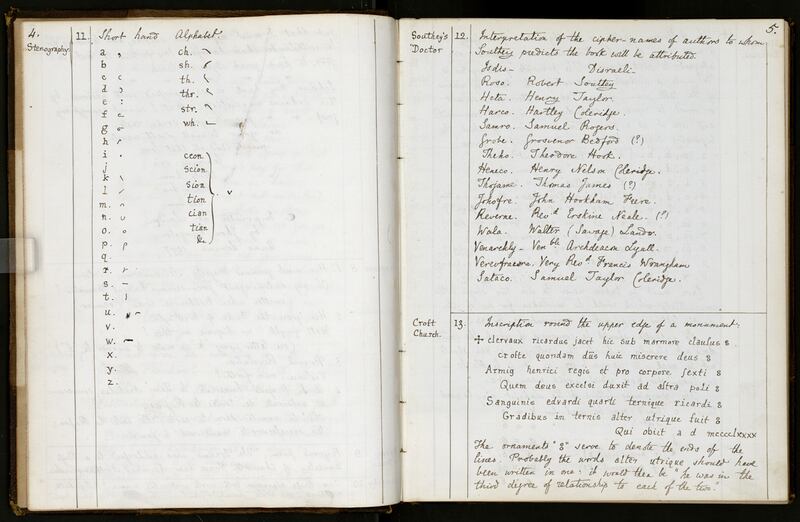 4.
Stenography
11. Short hand Alphabet.
a ch.
b sh.
c th.
d thr.
e str.
f wh.
g
h
i ceon
j scion
k sion
l tion
m. cian
n. tian
o. &c
p.
q.
r.
s.
t.
u.
v.
w.
x.
y.
z.
5.
Southey's Doctor
12. Interpretation of the cipher names of authors to whom
Southey predicts the book will be attributed.
Isdis – Disraeli –
Roso. Robert Southey
Heta. Henry Taylor.
Harco. Hartley Coleridge.
Samro. Samuel Rogers.
Grobe. Grosvenor Bedford (?)
Theho. Theodore Hook.
Heneco. Henry Nelson Coleridge.
Thojame. Thomas James (?)
Johofre. John Hookham Frere.
Reverne. Revd Erskine Neale. (?)
Wala. Walter (Savage) Landor.
Venarchly – Venble Archdeacon Lyall.
Verevfrawra. Very Revd Francis Wrangham
Sataco. Samuel Taylor Coleridge.
Croft Church.
13. Inscription round the upper edge of a monument.
✝ clervaux ricardus jacet hic sub marmore clausus 8
crofte quondam dūs huic miserere deus 8
Armig henrici regis et pro corpore sexti 8
Quem deus excelsi duxit ad astra poli 8
Sanguinis edvardi quarti ternique ricardi 8
Gradibus in ternis alter utrique fuit 8
Qui obiit a d mccccLxxxx
The ornaments "8" serve to denote the ends of the
lines. Probably the words alter utrique should have
been written in one: it would then be "he was in the
third degree of relationship to each of the two."